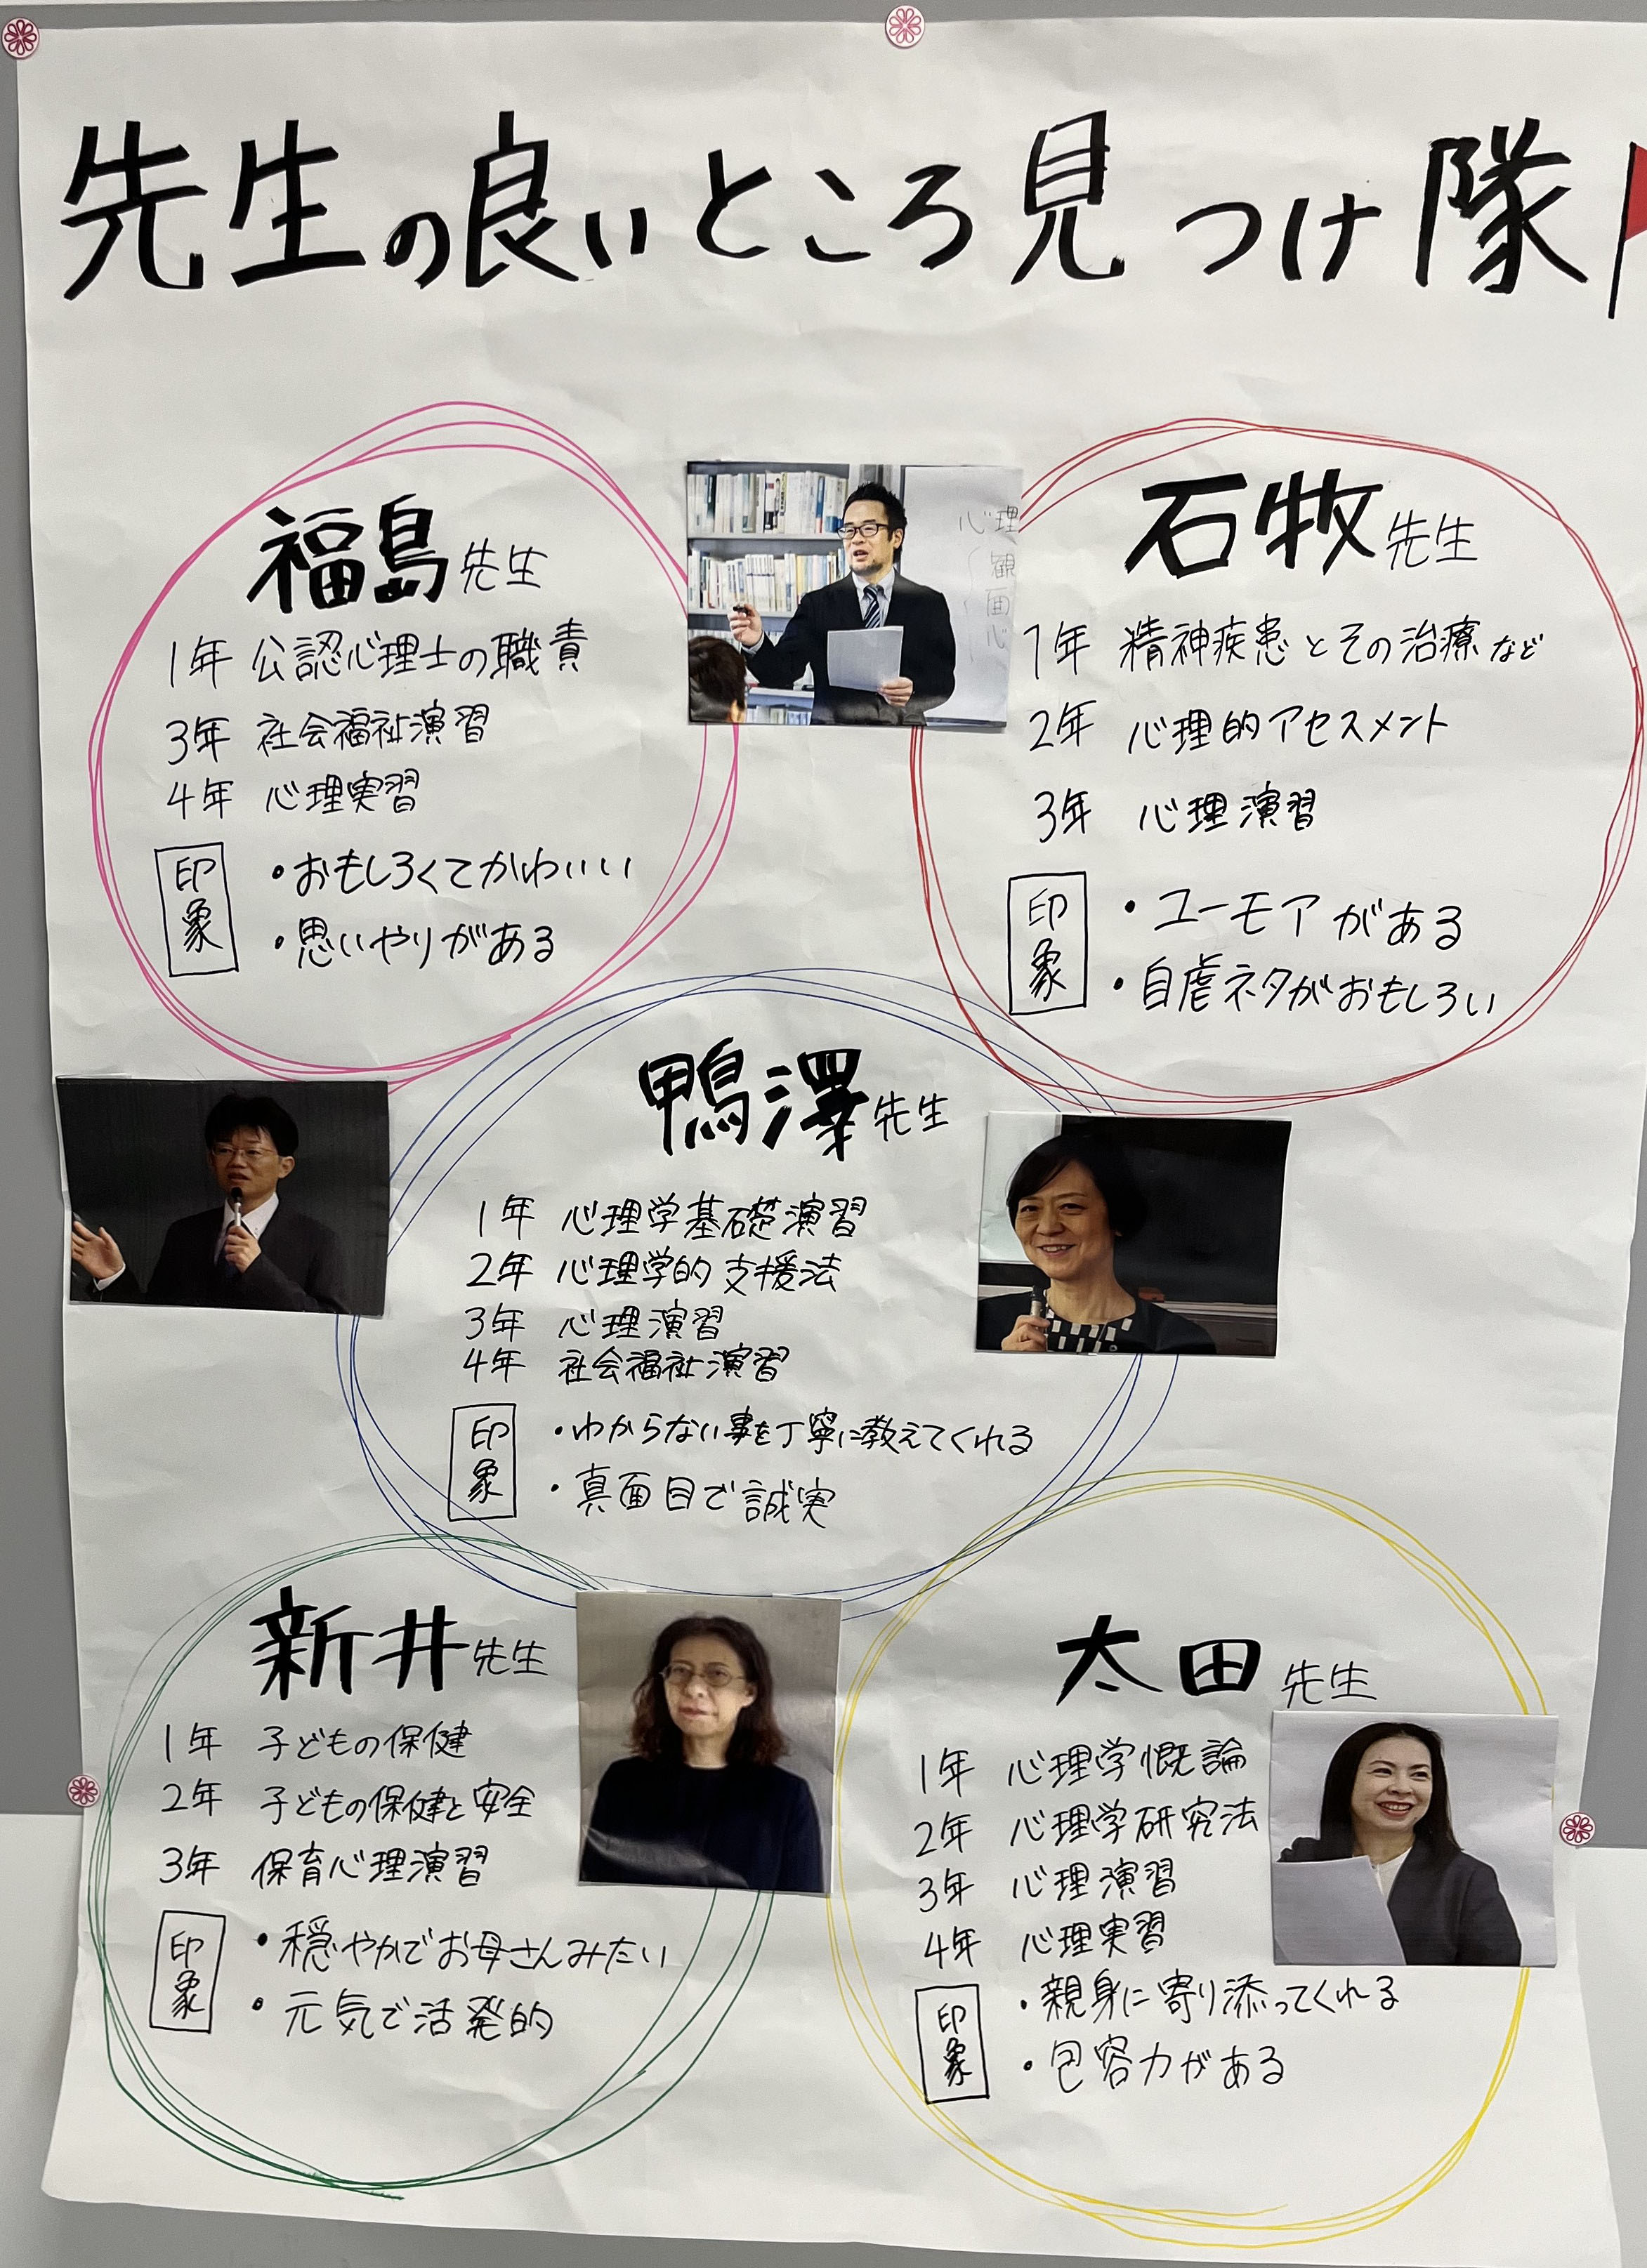 先生の良いところ見つけ隊
福島先生
1年 公認心理士の職責
3年 社会福祉演習
4年 心理実習
印象
・おもしろくてかわいい
・思いやりがある
心理
観
面
心
石牧先生
1年 精神疾患とその治療など
2年 心理的アセスメント
3年 心理演習
印象
・ユーモアがある
・自虐ネタがおもしろい
鴨澤先生
1年 心理学基礎演習
2年 心理学的支援法
3年 心理演習
4年 社会福祉演習
印象
・わからない事を丁寧に教えてくれる
・真面目で誠実
新井先生
1年 子どもの保健
2年 子どもの保健と安全
3年 保育心理演習
印象
・穏やかでお母さんみたい
・元気で活発的
太田先生
1年 心理学概論
2年 心理学研究法
3年 心理演習
4年 心理実習
印象
・親身に寄り添ってくれる
・包容力がある